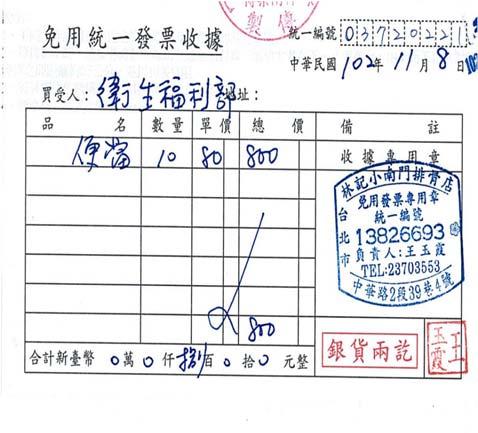 製
免用統一發票收據
統一編號 03720221
中華民國 102年 11月 8日
買受人：衛生福利部 地址：
品名 數量 單價 總價 備註
便當 10 80 800
收據專用章
林記小南門排骨店
免用發票專用章
統一編號
台北市
13826693
負責人:王玉霞
TEL:23703553
中華路2段39巷4號
800
銀貨兩訖
王玉霞
合計新臺幣 0萬0仟捌百0拾0元整